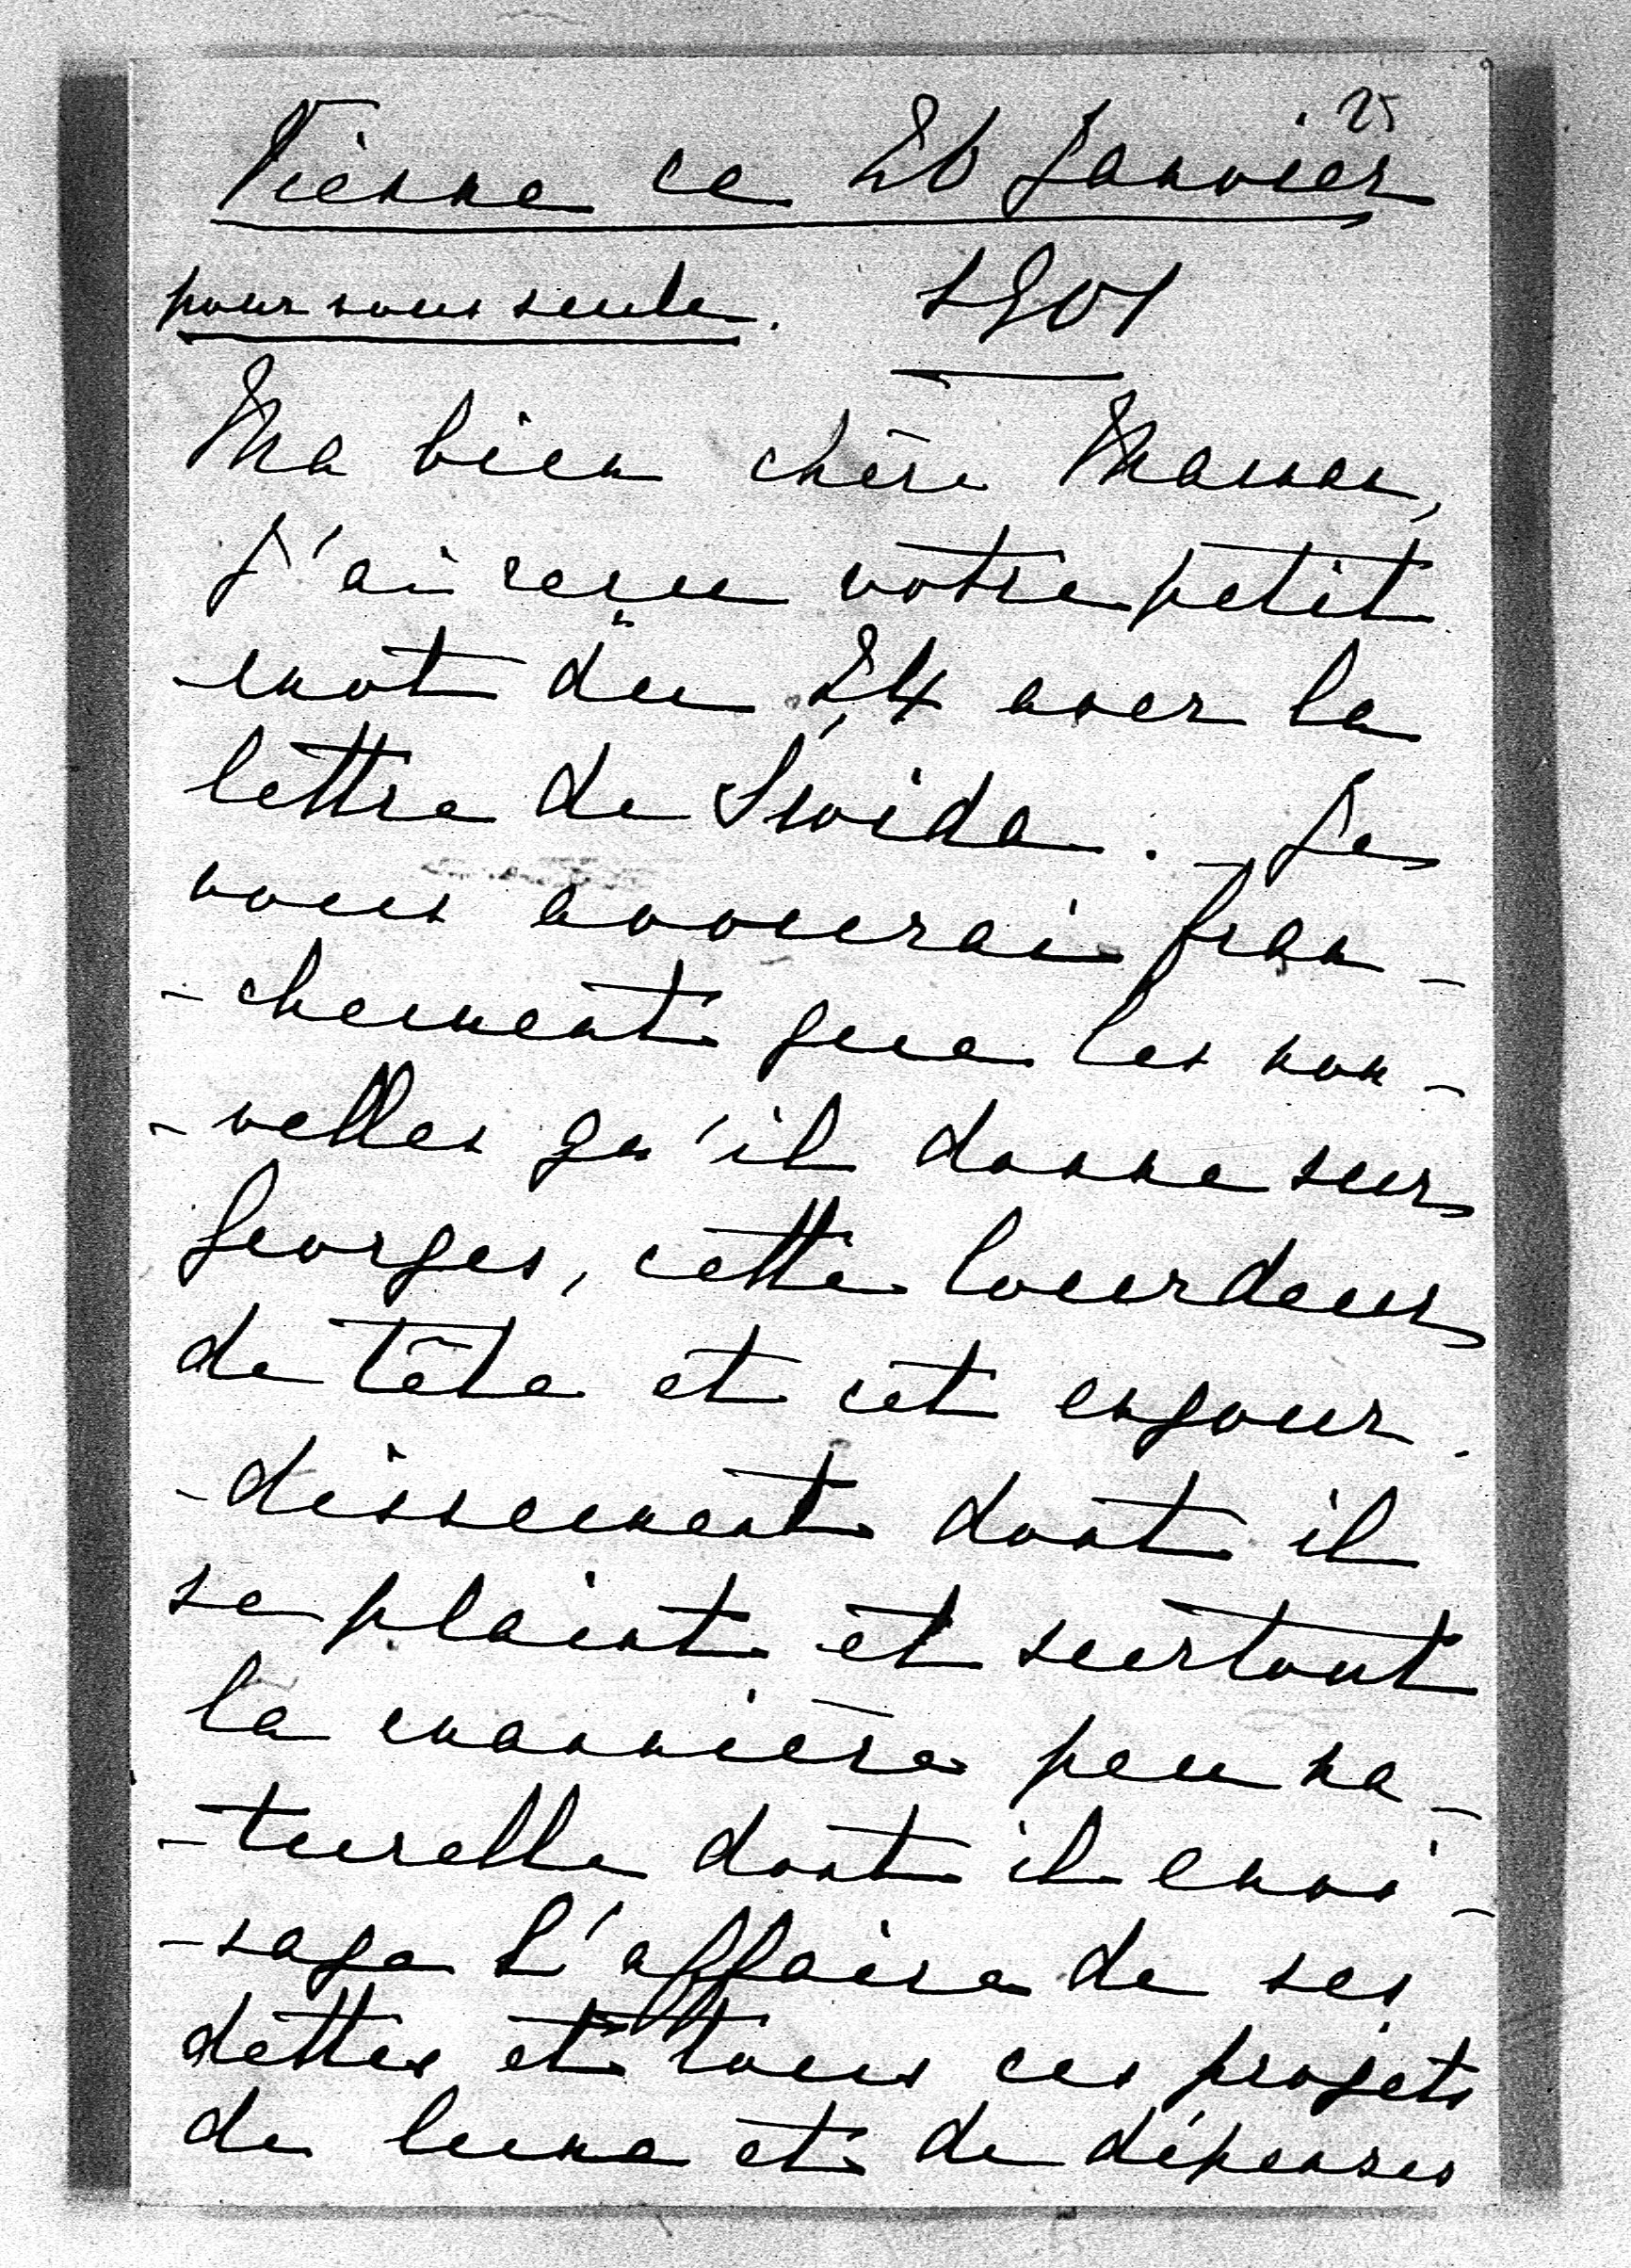 25
Vienne ce 26 Janvier
pour vous seule. 1901
Ma bien chère Maman,
J'ai reçu votre petit
mot du 24 avec la
lettre de Swida. – Je
vous avouerai fran-
-chement que les nou-
-velles qu'il donne sur
Georges, cette lourdeur
de tête et cet engour-
-dissement dont il
se plaint et surtout
la mannière peu na-
-turelle dont il envi-
-sage l'affaire de ses
dettes et tous ces projets
de lune et de dépenses